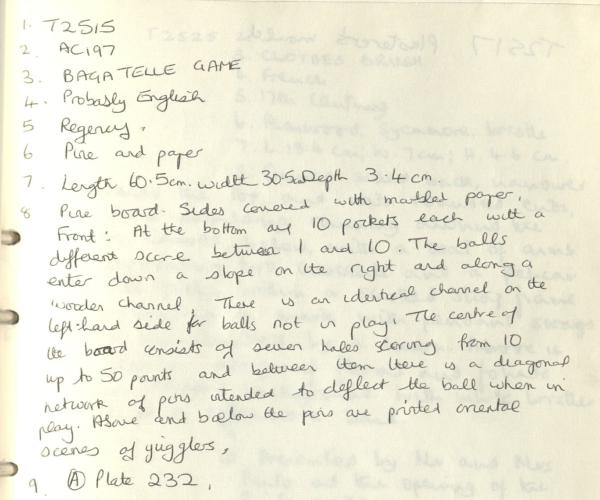 1. T2515
2. AC197
3. BAGATELLE GAME
4. Probably English
5 Regency.
6 Pine and paper
7. Length 60.5cm. width 30.5cm Depth 3.4 cm
8 Pine board. Sides covered with marbled paper.
Front: At the bottom are 10 pockets each with a
different score between 1 and 10. The balls
enter down a slope on the right and along a
wooden channel. There is an identical channel on the
left-hand side for balls not in play. The centre of
the board consists of seven holes scoring from 10
up to 50 points and between them there is a diagonal
network of pins intended to deflect the ball when in
play. Above and below the pins are printed oriental
scenes of jugglers.
9. (A) Plate 232.